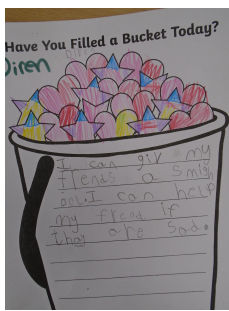 Have You Filled a Bucket Today?
Diren
I can giv my
frends a smigh
I can help
my frend if
thay are sad.